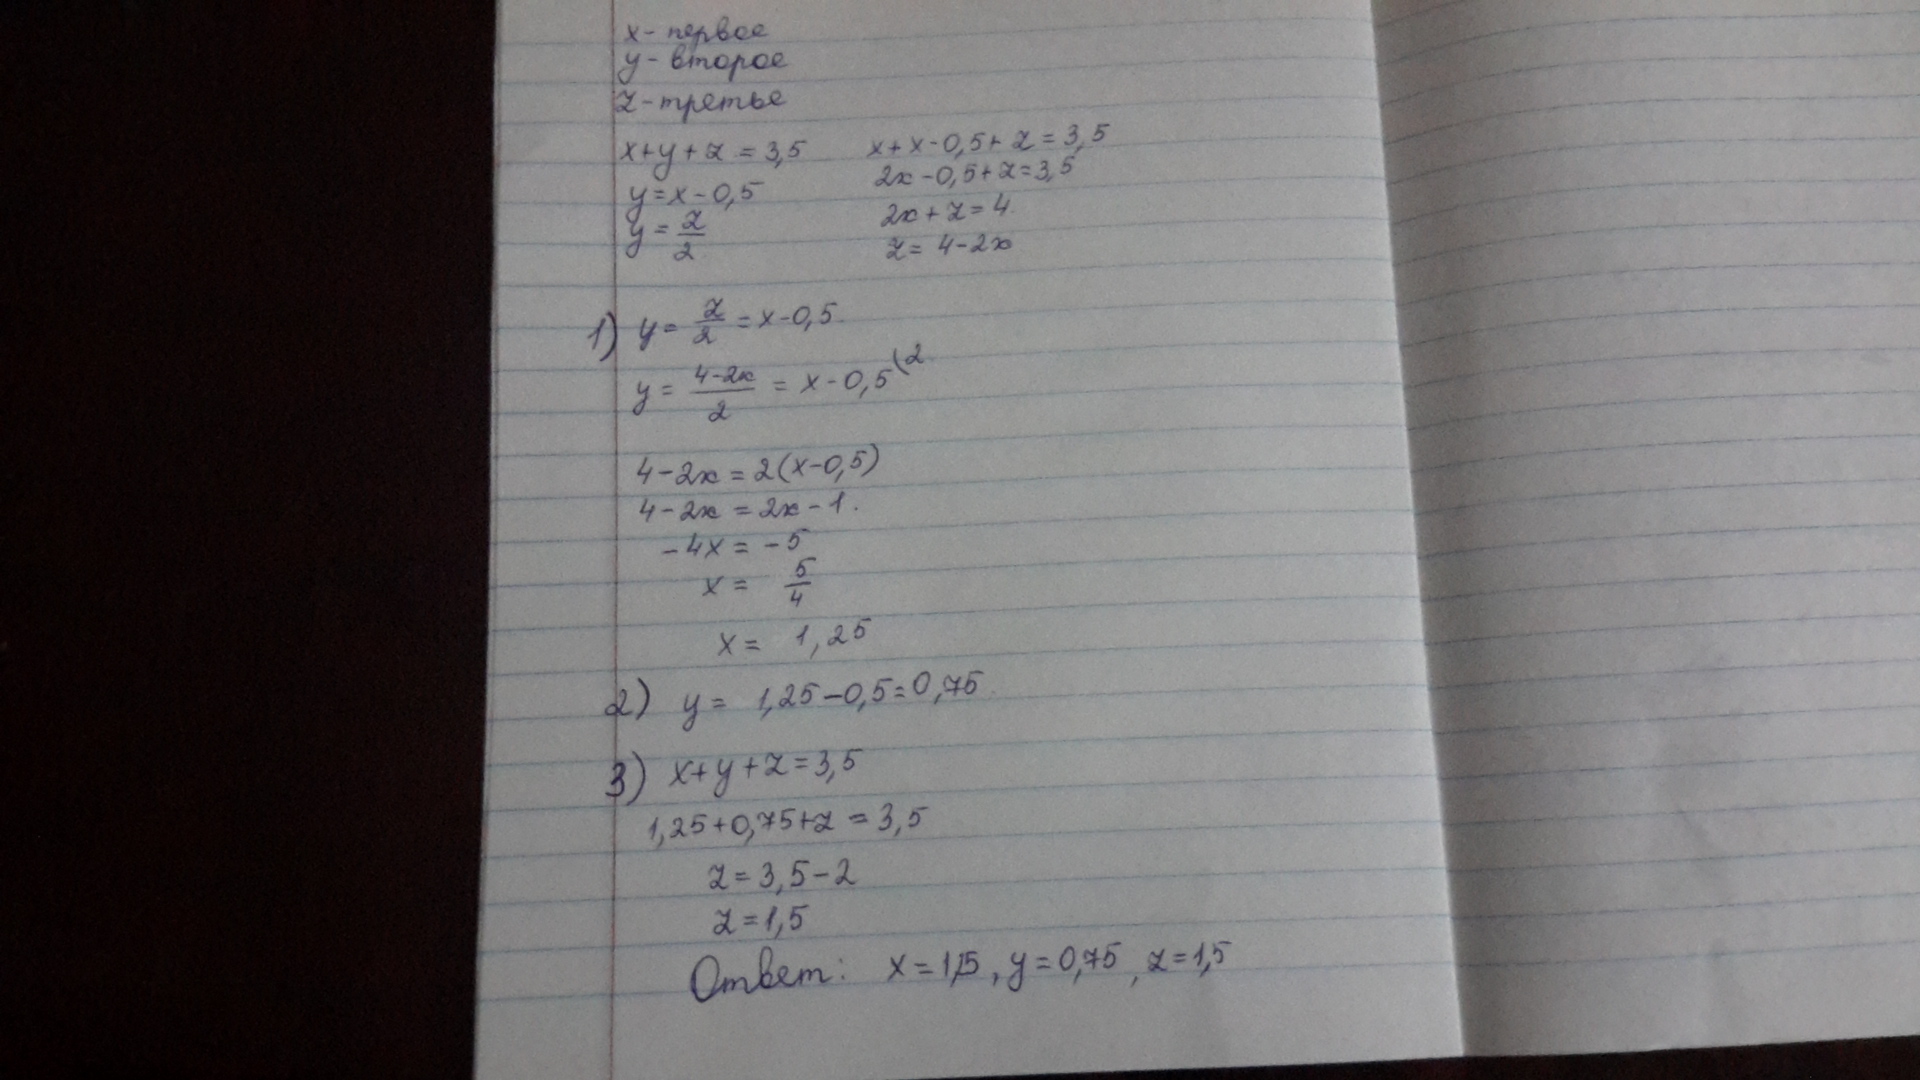 x - первое
y - второе
z - третье
x+y+z = 3,5
y=x-0,5
y = z/2
x+x-0,5+z=3,5
2x-0,5+z=3,5
2x+z=4
z= 4-2x
1) y= z/2 = x-0,5
y= (4-2x)/2 = x-0,5 (2
4-2x=2(x-0,5)
4-2x=2x-1.
-4x=-5
x= 5/4
x= 1,25
2) y= 1,25-0,5=0,75
3) x+y+z=3,5
1,25+0,75+z=3,5
z=3,5-2
z=1,5
Ответ: x=1,5, y=0,75, z=1,5